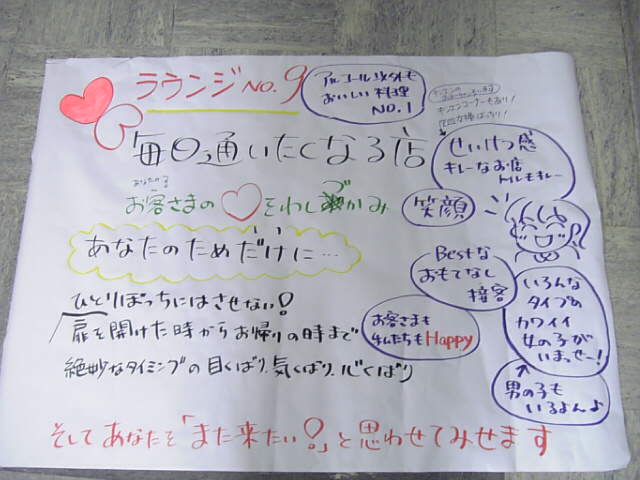 ラウンジNO.9
アルコール以外も
おいしい料理
NO.1
キッズコーナーもあり!
毎日通いたくなる店
せいけつ感
キレーなお店
トイレもキレー
あなたの
お客さまの♡をわしづかみ
笑顔
あなたのためだけに…
Bestな
おもてなし
接客
いろんな
タイプの
カワイイ
女の子が
いまっせー!
ひとりぼっちにはさせない!
扉を開けた時からお帰りの時まで
絶妙なタイミングの目くばり、気くばり、心くばり
お客さまも
私たちもHappy
男の子も
いるよんよ
そしてあなたを「また来たい!」と思わせてみせます